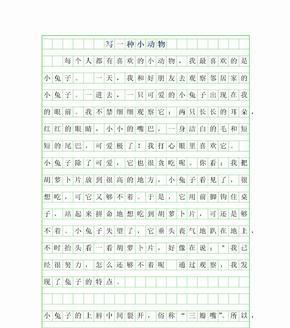 写一种小动物
每个人都有喜欢的小动物，我最喜欢的是
小兔子。一天，我和好朋友去观察邻居家的
小兔子。一进去，一只可爱的小兔子出现在我
的眼前。我不禁细细观察它：两只长长的耳朵，
红红的眼睛，小小的嘴巴，一身洁白的毛和短
短的尾巴，可爱极了！我打心眼里喜欢它。
小兔子除了可爱，它也很贪吃呢。你看：我把
胡萝卜片放到很高的地方，小兔子看见了，很
想吃，可它又够不着。于是，它用前脚钩住桌
子，站起来拼命地想吃到胡萝卜片，可还是够
不着。小兔子失望了；它垂头丧气地趴在地上，
不时抬头看一看胡萝卜片，好像在说：“我已
经很努力，怎么还够不着呢 通过观察，我发
现了兔子的特点。
小兔子的上唇中间裂开，俗称“三瓣嘴”。所以，